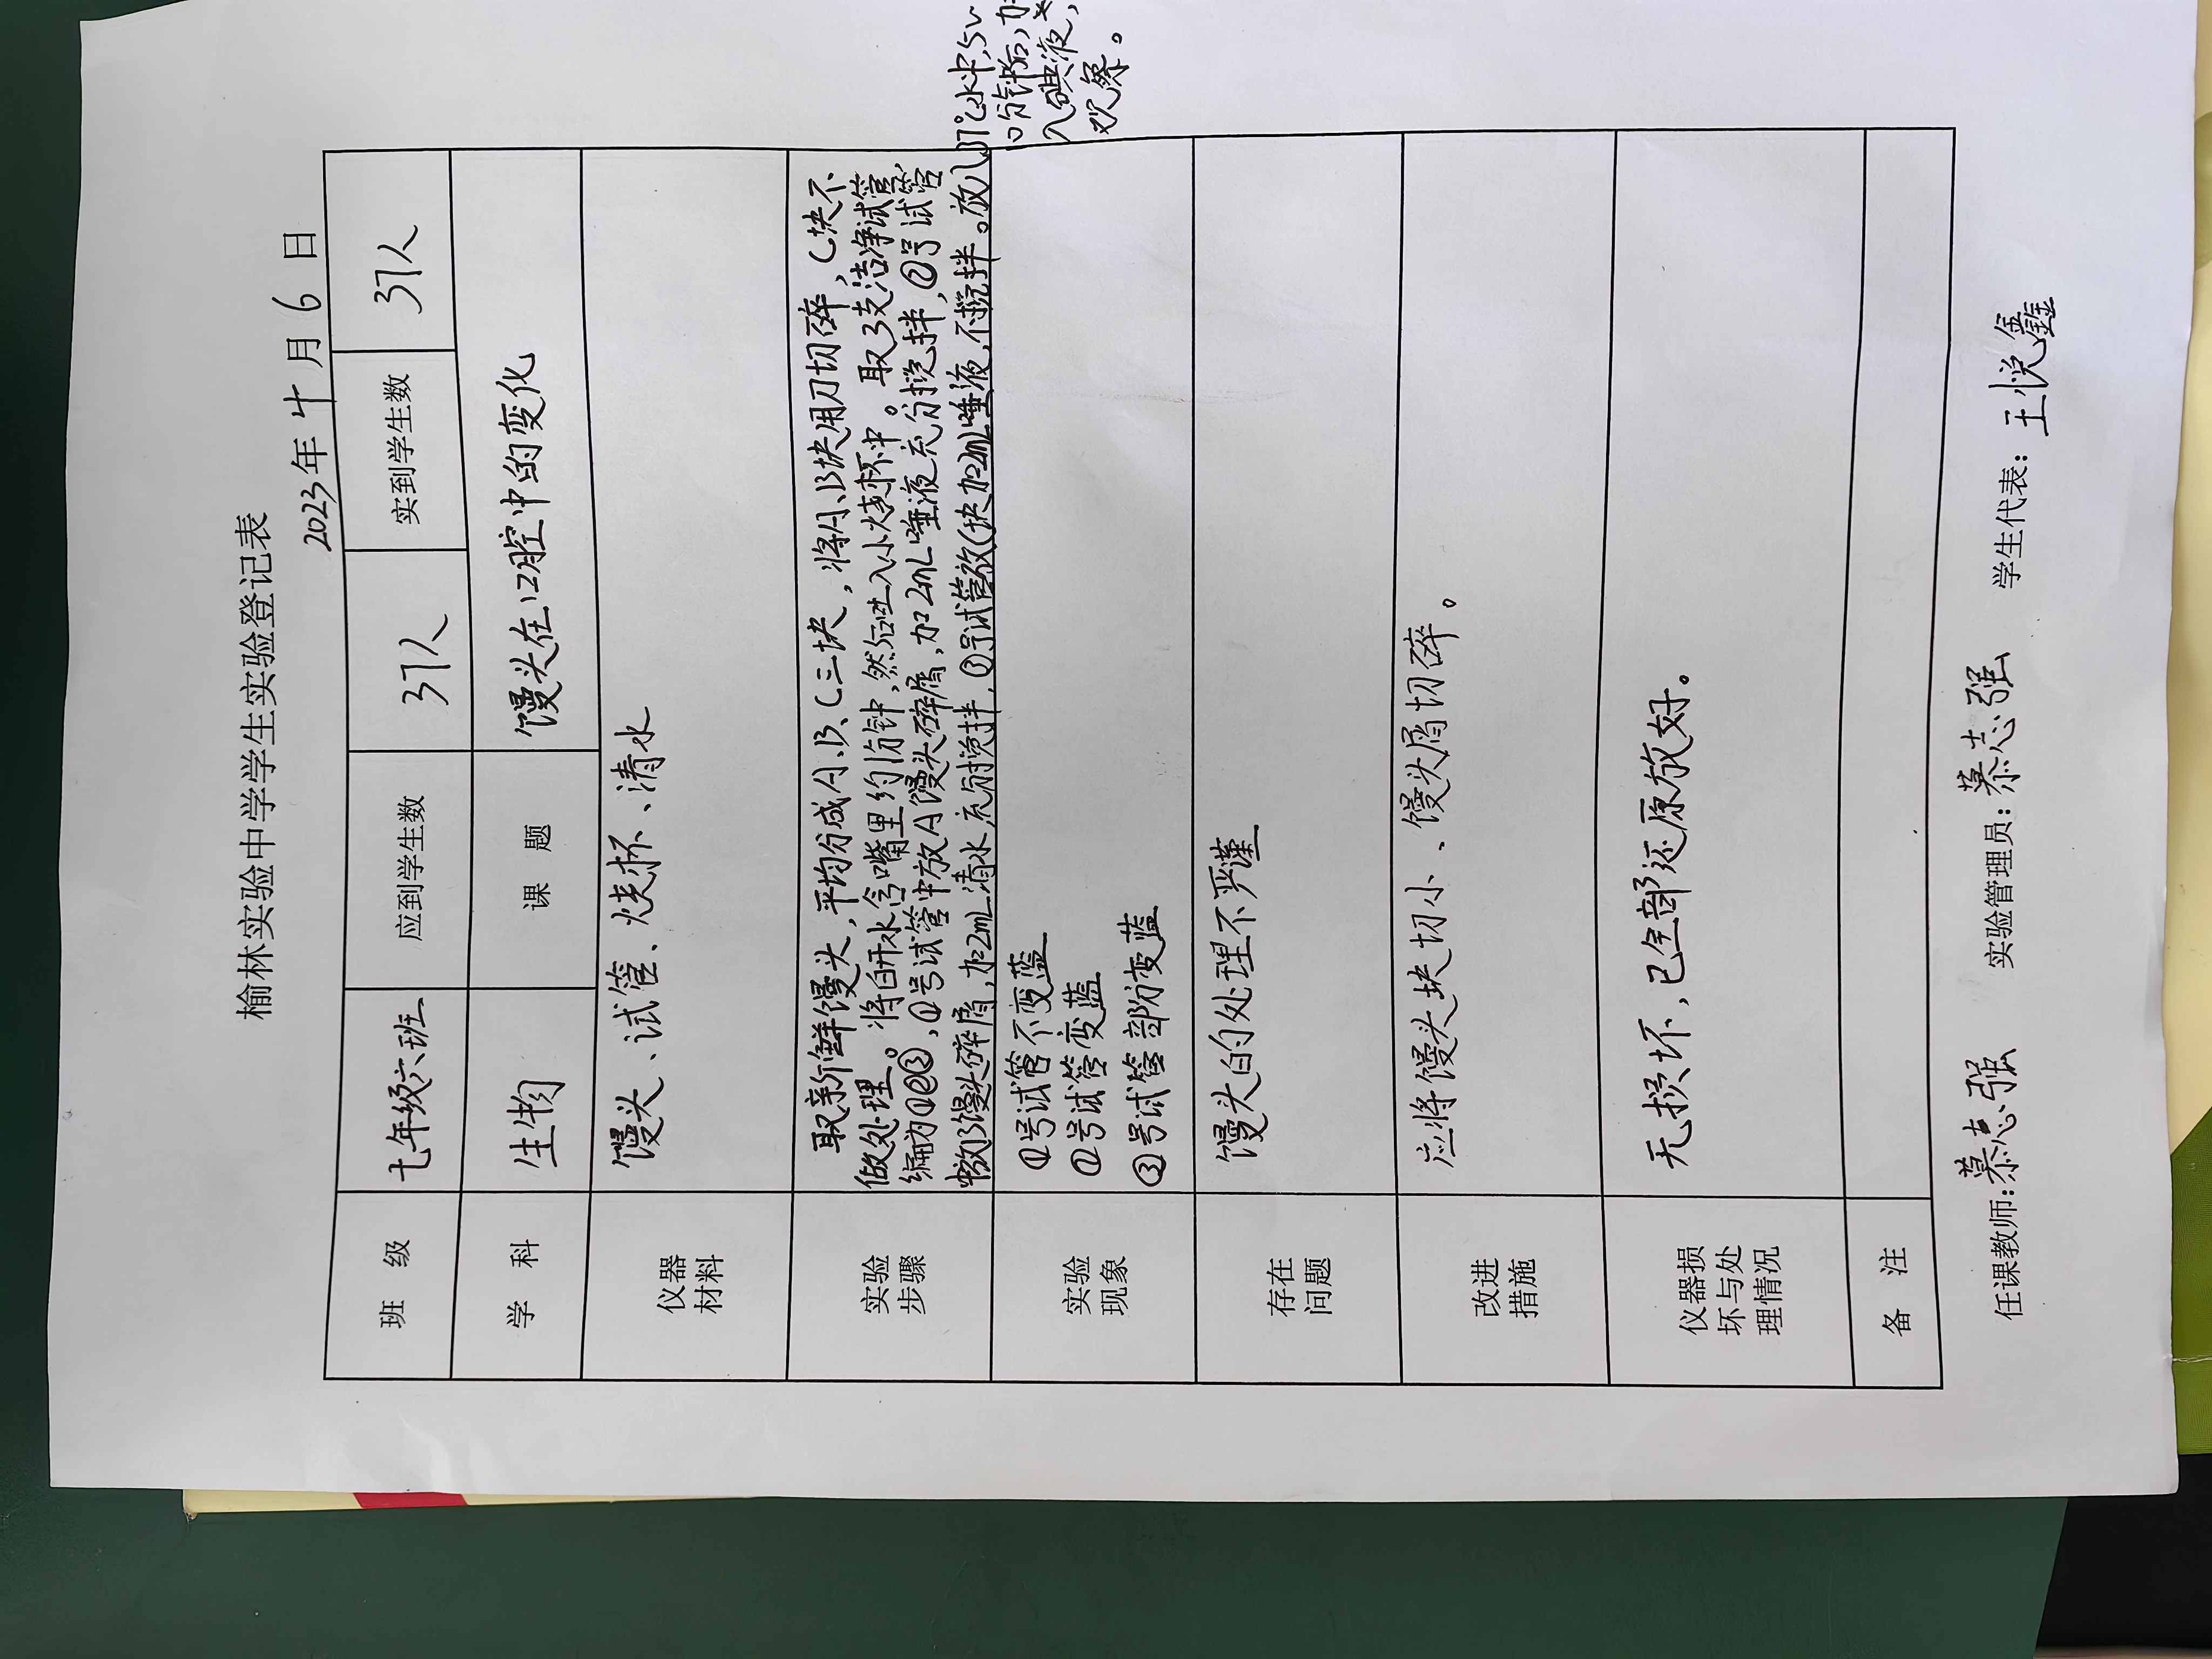 榆林实验中学学生实验登记表
2023年十月6日
班 级 七年级六班 应到学生数 37人 实到学生数 37人
学 科 生物 课 题 馒头在口腔中的变化
仪器
材料
馒头、试管、烧杯、清水
实验
步骤
取新鲜馒头,平均分成A、B、C三块,将A、B块用刀切碎,C块不
做处理。将白开水含嘴里约1分钟,然后吐入小烧杯中。取3支洁净试管,
编为①②③,①号试管中放A馒头碎屑,加2mL唾液充分搅拌,②号试管
中放B馒头碎屑,加2mL清水充分搅拌,③号试管放C块加2mL唾液,不搅拌。放入
37℃水中,5~
10分钟后,加
入碘液,
观察。
实验
现象
①号试管不变蓝
②号试管变蓝
③号试管部分变蓝
存在
问题
馒头的处理不严谨
改进
措施
应将馒头块切小、馒头屑切碎。
仪器损
坏与处
理情况
无损坏,已全部还原放好。
备 注
任课教师:慕志强 实验管理员:慕志强 学生代表:王悦鑫